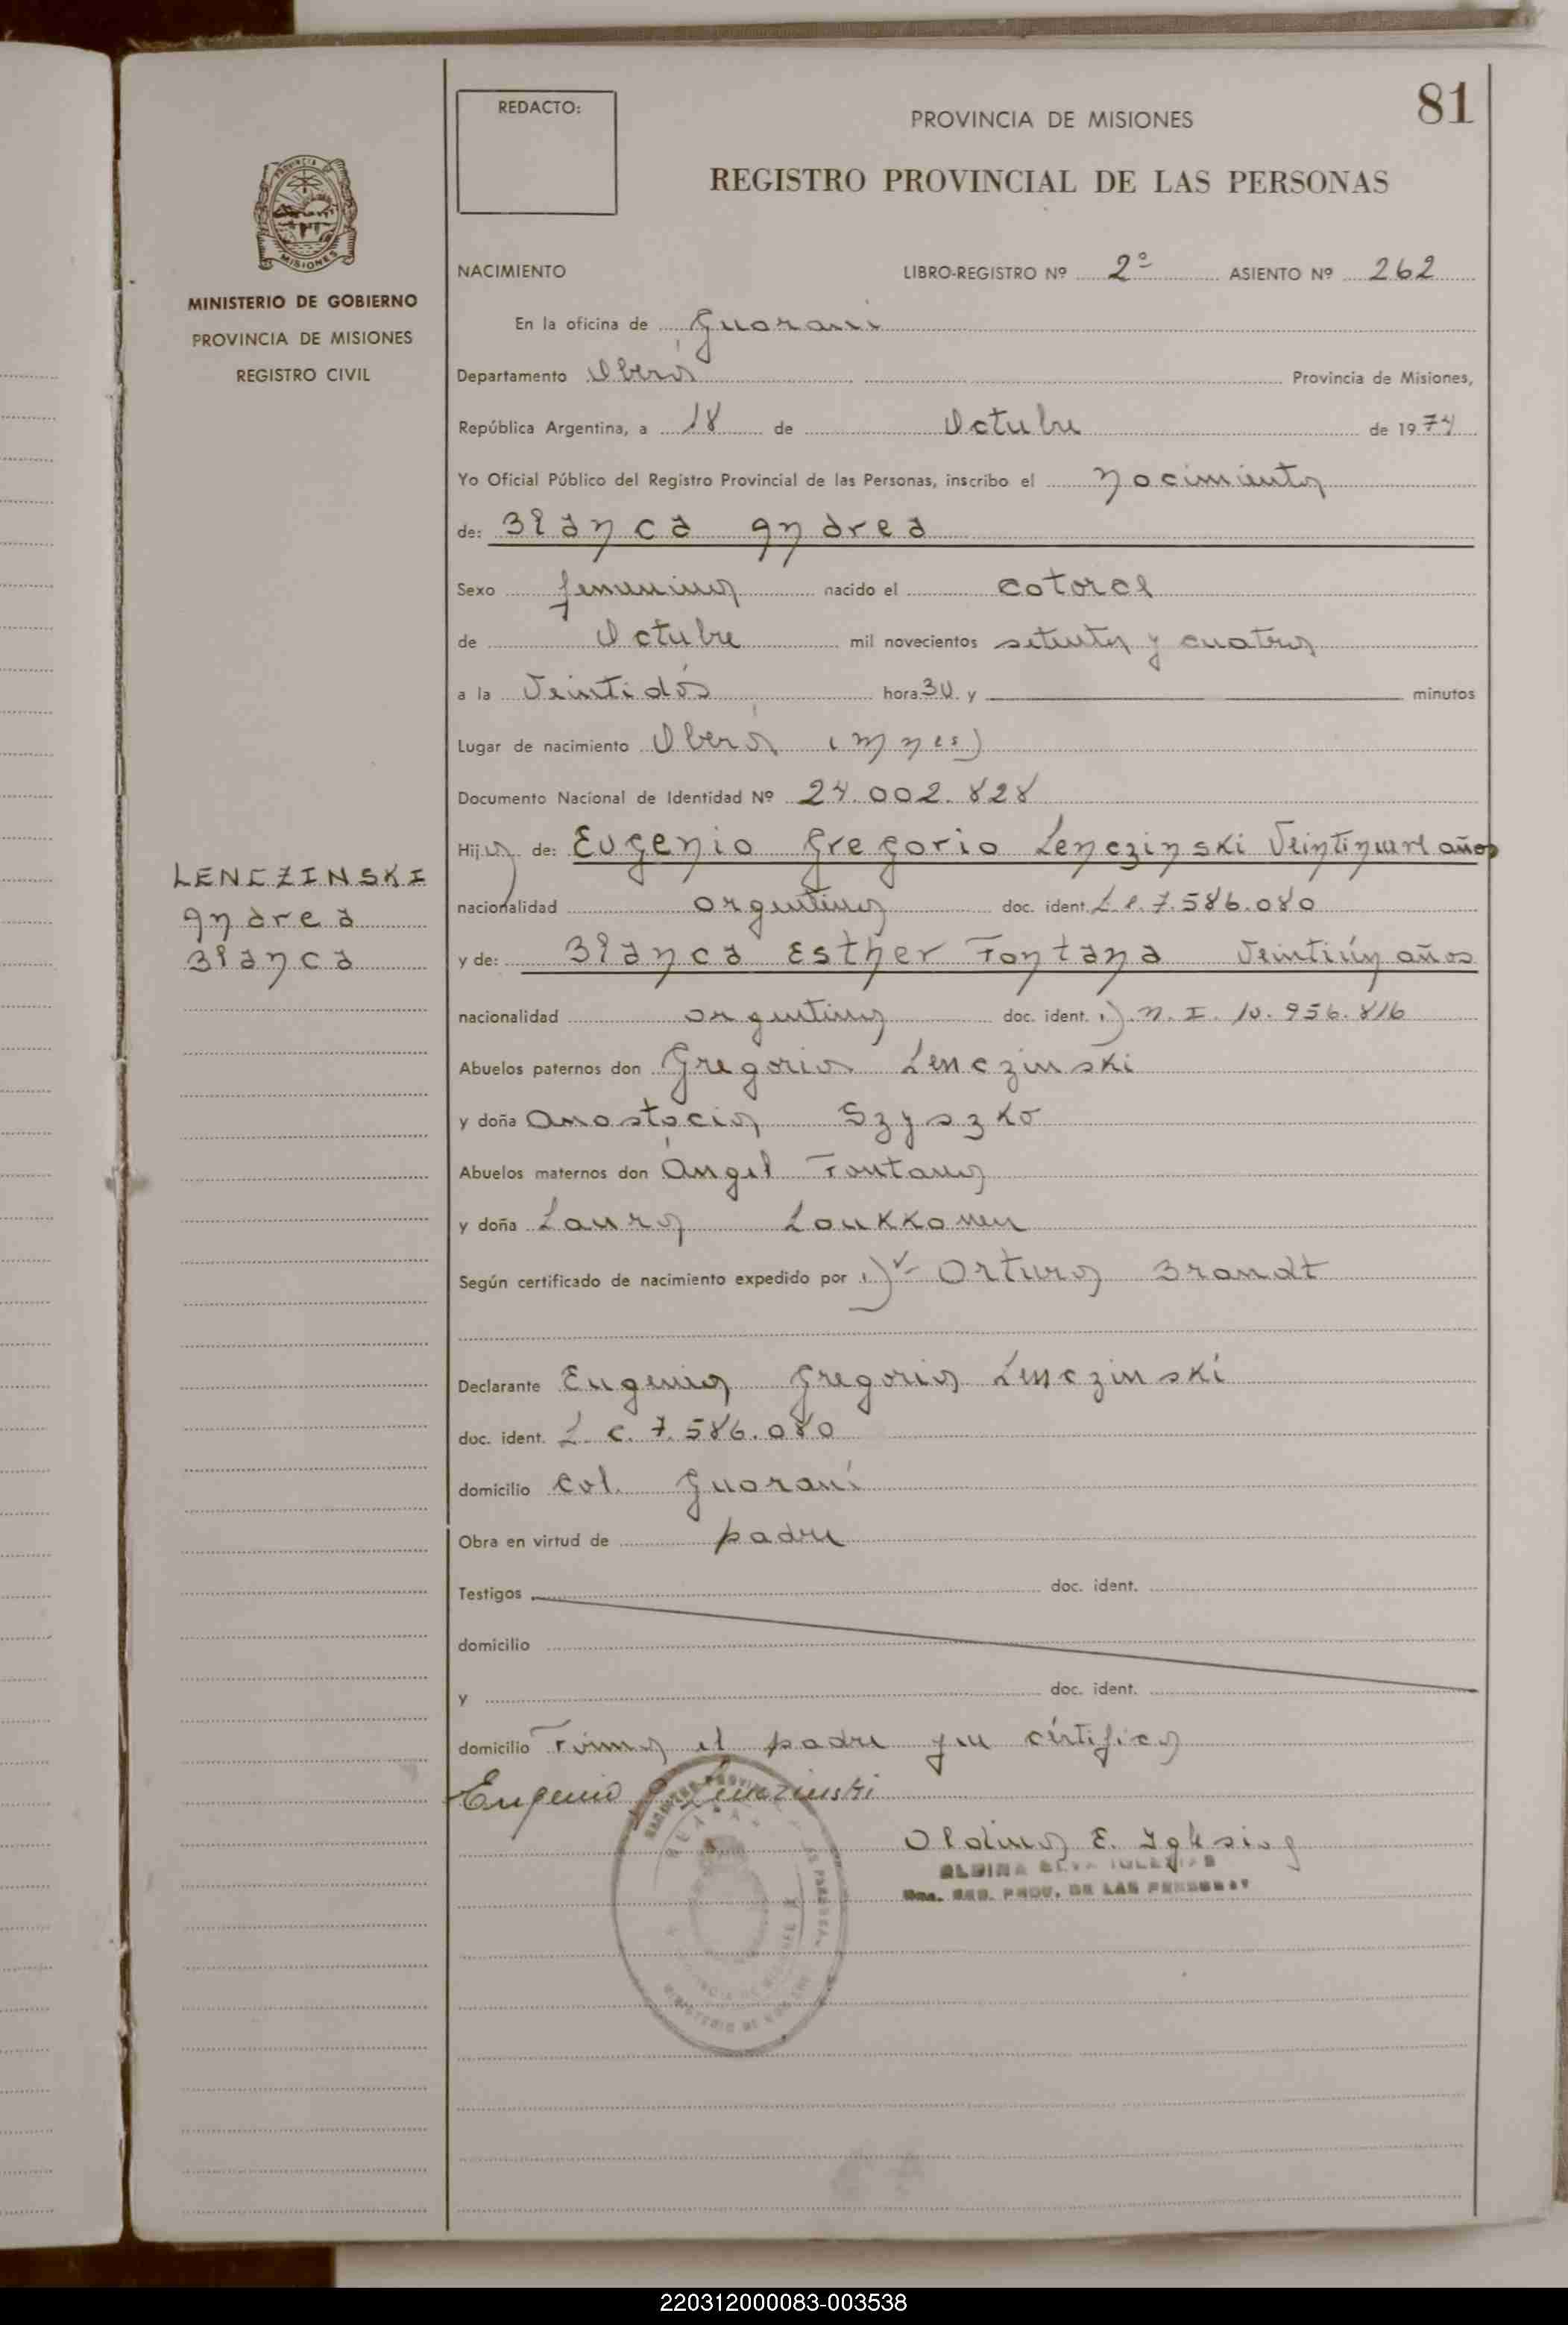 81
REDACTO:
PROVINCIA DE MISIONES
REGISTRO PROVINCIAL DE LAS PERSONAS
PROVINCIA
MISIONES
MINISTERIO DE GOBIERNO
PROVINCIA DE MISIONES
REGISTRO CIVIL
NACIMIENTO LIBRO-REGISTRO Nº 2º ASIENTO Nº 262
En la oficina de Guarani
Departamento Oberá Provincia de Misiones,
República Argentina, a 18 de Octubre de 1974
Yo Oficial Público del Registro Provincial de las Personas, inscribo el nacimiento
de: Blanca Andrea
Sexo femenino nacido el catorce
de Octubre mil novecientos setenta y cuatro
a la Veintidós hora 30 y minutos
Lugar de nacimiento Oberá (Mnes)
Documento Nacional de Identidad Nº 24.002.828
Hija de: Eugenio Gregorio Lenczinski Veintinueve años
LENCZINSKI
Andrea
Blanca
nacionalidad argentina doc. ident. L.E. 7.586.080
y de: Blanca Esther Fontana Veintiún años
nacionalidad argentina doc. ident. D.N.I. 10.956.816
Abuelos paternos don Gregorio Lenczinski
y doña Anastacia Szyszko
Abuelos maternos don Ángel Fontana
y doña Laura Loukkonen
Según certificado de nacimiento expedido por Dr Arturo Brandt
Declarante Eugenio Gregorio Lenczinski
doc. ident. L.E. 7.586.080
domicilio Col. Guaraní
Obra en virtud de padre
Testigos doc. ident.
domicilio
y doc. ident.
domicilio Firma el padre que certifico
Eugenio G Lenczinski
Aldina E. Iglesias
ALDINA ELVA IGLESIAS
REG. PROV. DE LAS PERSONAS
220312000083-003538